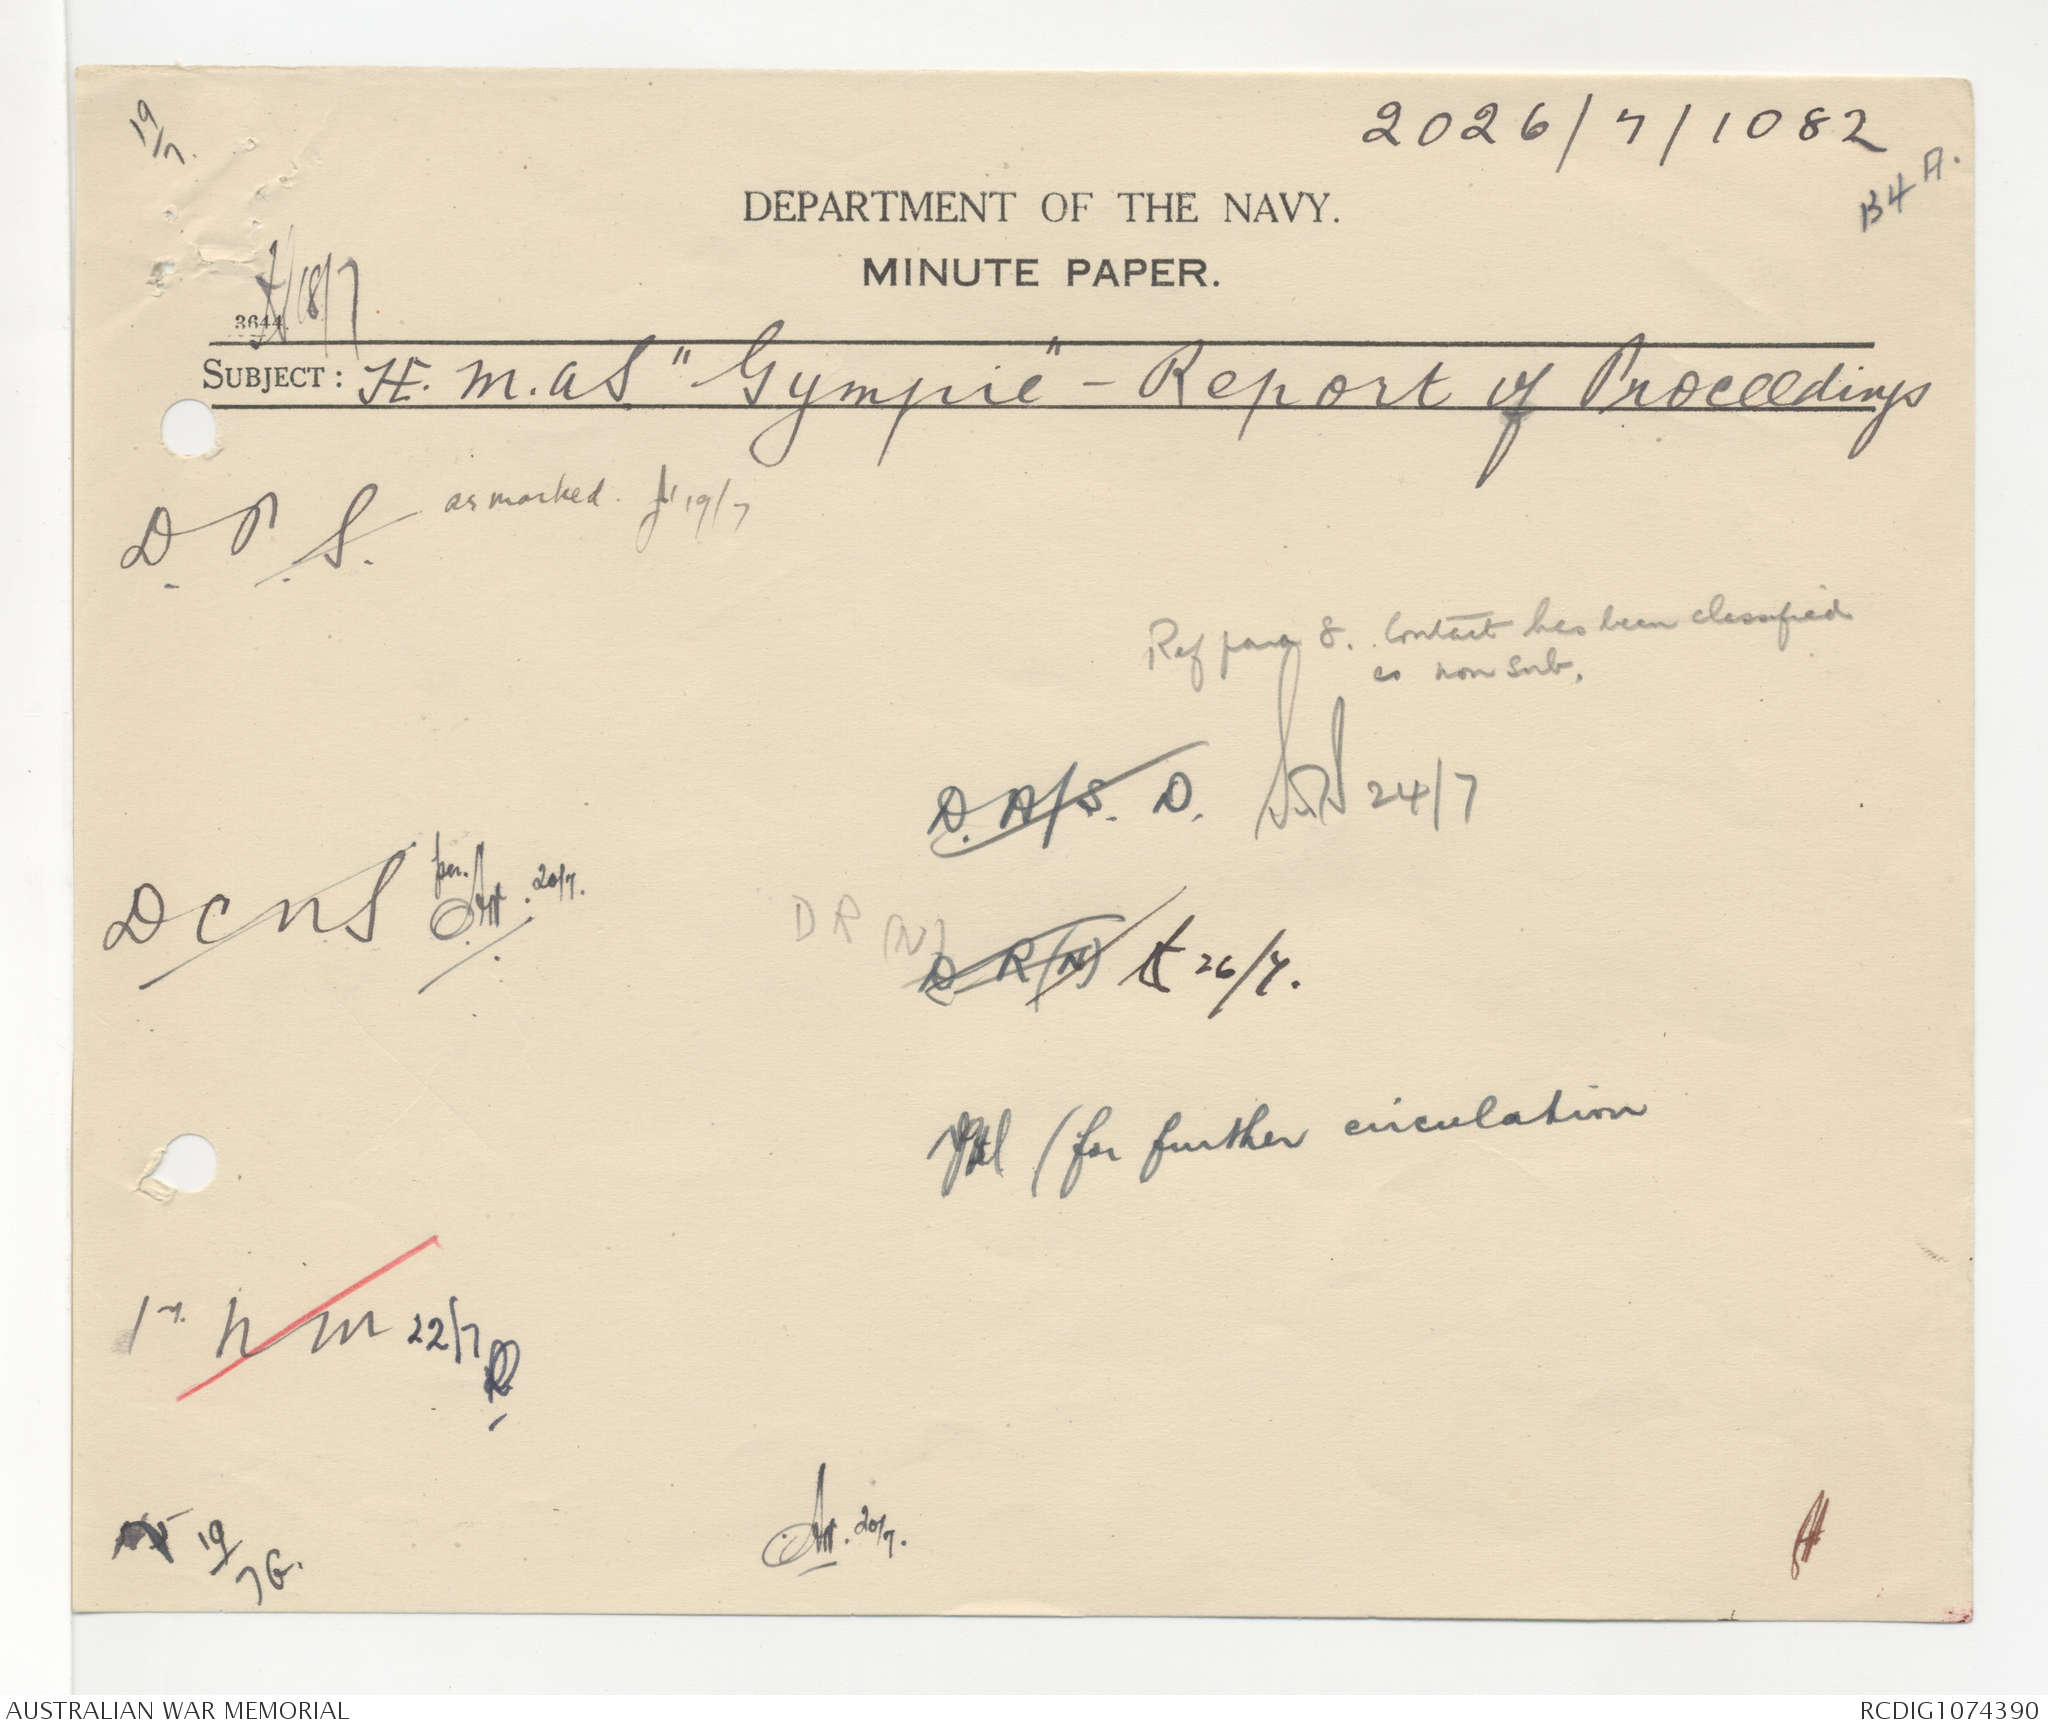 19/7.
2026/7/1082
B4A.
DEPARTMENT OF THE NAVY.
MINUTE PAPER.
18/7
3644.
SUBJECT: H.M.A.S "Gympie" - Report of Proceedings
D.P.S. as marked. 19/7
Ref para 8. Contact has been classified
as non sub.
D.A/S.D. 24/7
DCNS per. 20/7.
DR(N)
D.R(N) 26/7.
(for further circulation
1st NM 22/7
19/7 G.
20/7.
AUSTRALIAN WAR MEMORIAL
RCDIG1074390